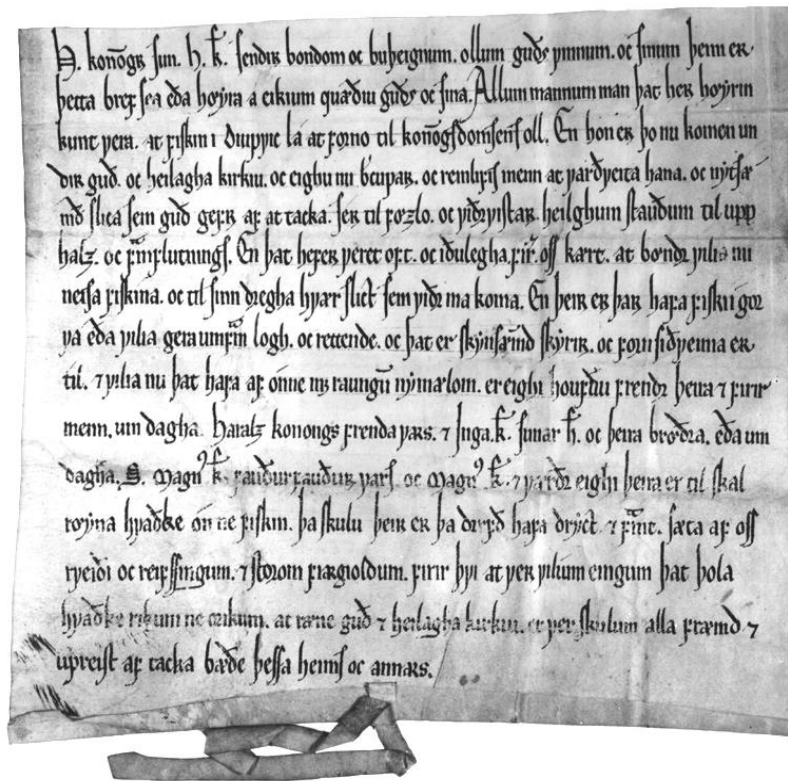 H. konōgs sun. H. k̄. sendir bondom oc buþeignum. ollum guðs vinnum. oc sinum þeim er
þetta bref sea eða hoyra a eikium quæðiu guðs oc sina. Allum mannum man þat her hoyrin
kunt vera. at fiskin i diuppie la at forno til konōgsdomsens oll. En hon er þo nu komen un
dir guð. oc heilagha kirkiu. oc eighu nu bcupar. oc reinlifis menn at varðveita hana. oc nytsæ
mð slica sem guð gefr af at tacka. ser til forzlo. oc viðrvistar. heilghum stauðum til upp
halz. oc fmflutnings. En þat hefer veret oft. oc iðulegha. fir. oss kært. at bondr vilia nu
neisa fiskina. oc til sinn dregha hvær slict sem viðr ma koma. En þeir er þar hafa fisku gor
va eða vilia gera umfm logh. oc rettende. oc þat er skynsamd skyrir. oc forn siðvenna er
til. ⁊ vilia nu þat hafa af onne mz raungu nymælom. er eighi houfðu frendr þeira ⁊ firir
menn. um dagha. Haralz konongs frenda vars. ⁊ Inga. k̄. sunar h̄. oc þeira brodra. eða um
dagha. S. magn⁹ k̄. fauðurfauður vars. oc magn⁹. k̄. ⁊ varðr eighi þeira er til skal
royna hvaðke on ne fiskin. þa skulu þeir er þa dirfð hafa dryct. ⁊ fmt. sæta af oss
rveiði oc reifssingum. ⁊ storom fiargioldum. firir þvi at ver vilium eingum þat þola
hvaðke rikum ne orikum. at ræne guð ⁊ heilagha kirkiu. er ver skulum alla fræmd ⁊
upreist af tacka bæðe þessa heims oc annars.